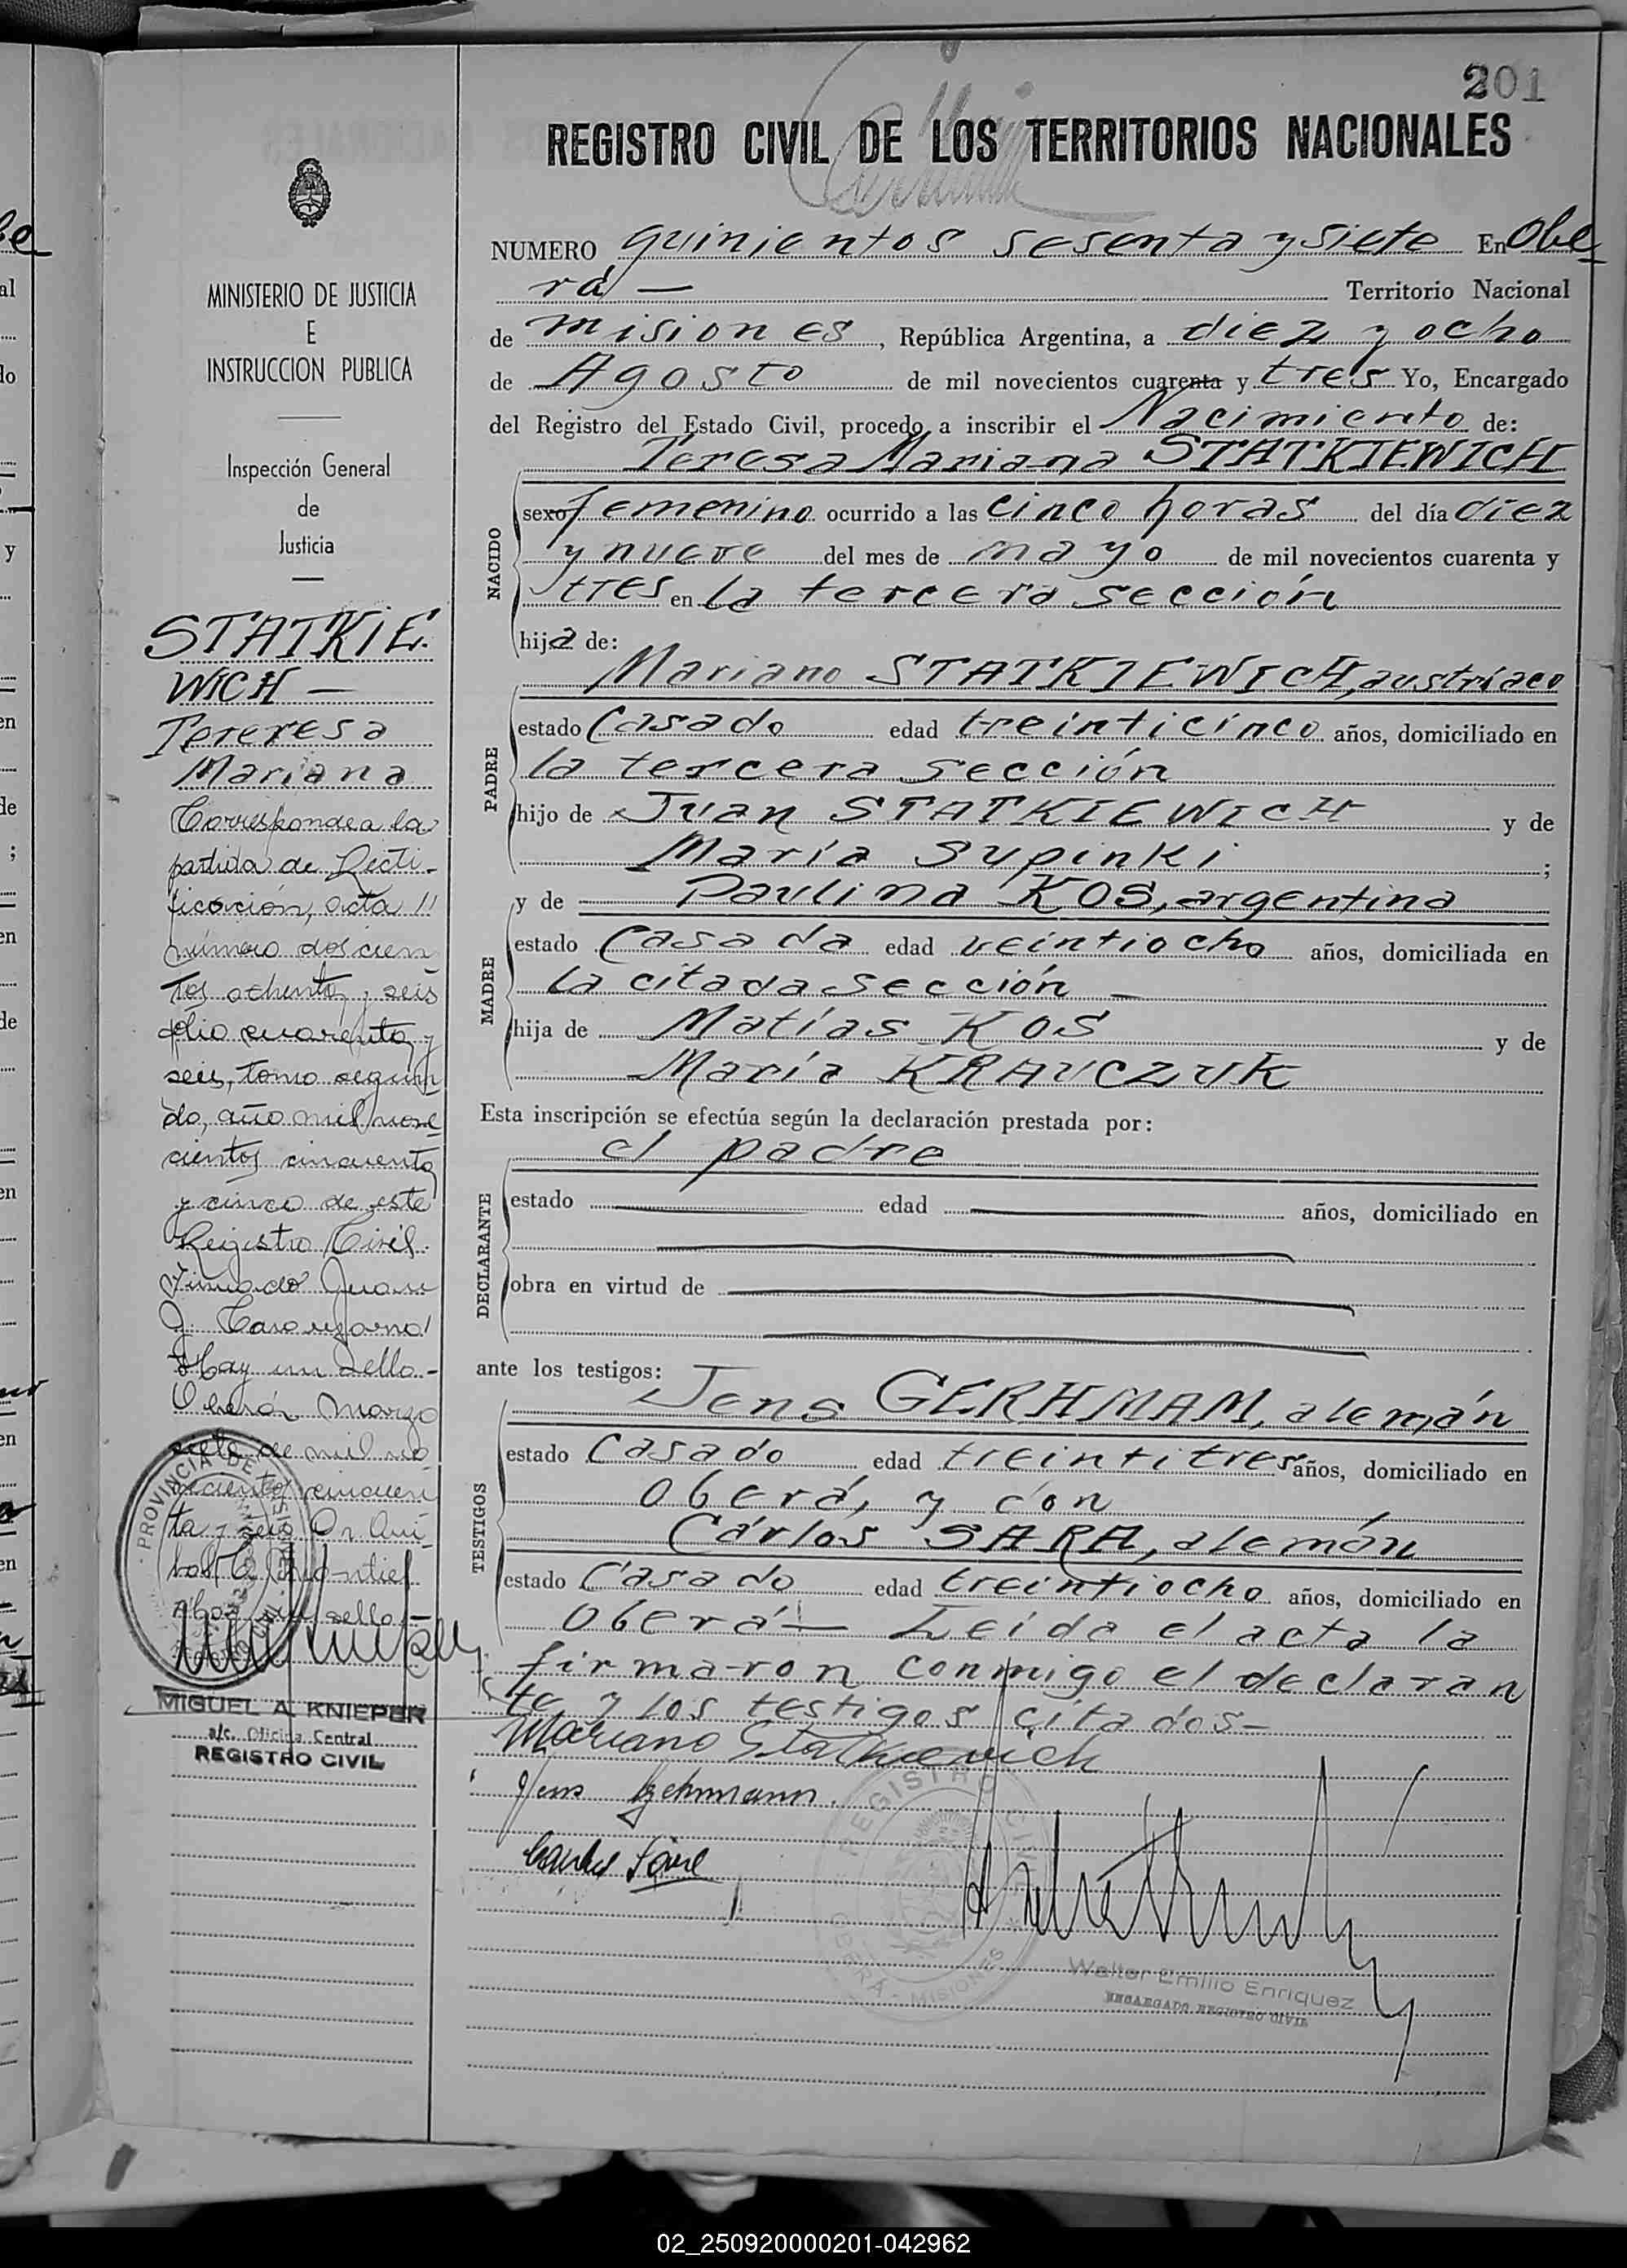 201
REGISTRO CIVIL DE LOS TERRITORIOS NACIONALES
MINISTERIO DE JUSTICIA
E
INSTRUCCION PUBLICA
Inspección General
de
Justicia
STATKIE-
WICH —
Tereresa
Mariana
Corresponde a la
partida de Recti-
ficación, acta
número doscien
tos ochenta y seis
folio cuarenta y
seis, tomo segun
do, año mil nove
cientos cincuenta
y cinco de este
Registro Civil.
Firmado Juan
J.
Hay un sello.-
Oberá, Marzo
siete de mil no
vecientos cincuen
ta y seis
sello.-
PROVINCIA DE MISIONES
MIGUEL A. KNIEPER
a/c. Oficina Central
REGISTRO CIVIL
NUMERO quinientos sesenta y siete En Obe
rá — Territorio Nacional
de misiones, República Argentina, a diez y ocho
de Agosto de mil novecientos cuarenta y tres Yo, Encargado
del Registro del Estado Civil, procedo a inscribir el Nacimiento de:
Teresa Mariana STATKIEWICH
NACIDO
sexo femenino ocurrido a las cinco horas del día diez
y nueve del mes de mayo de mil novecientos cuarenta y
tres en la tercera sección
hija de:
Mariano STATKIEWICH, austríaco
PADRE
estado Casado edad treinticinco años, domiciliado en
la tercera sección
hijo de Juan STATKIEWICH y de
María Supinki ;
y de Paulina KOS, argentina
MADRE
estado Casada edad veintiocho años, domiciliada en
la citada sección —
hija de Matías KOS y de
María KRAUCZUK
Esta inscripción se efectúa según la declaración prestada por:
el padre
DECLARANTE
estado edad años, domiciliado en
obra en virtud de
ante los testigos:
Jens GERHMAM, alemán
TESTIGOS
estado Casado edad treintitres años, domiciliado en
Oberá, y don
Cárlos SARA, alemán
estado Casado edad treintiocho años, domiciliado en
Oberá — Leída el acta la
firmaron conmigo el declaran
te y los testigos citados—
Mariano Statkievich
Jens Gehrmann.
REGISTRO CIVIL
OBERÁ - MISIONES
Walter Emilio Enriquez
ENCARGADO REGISTRO CIVIL
02_250920000201-042962